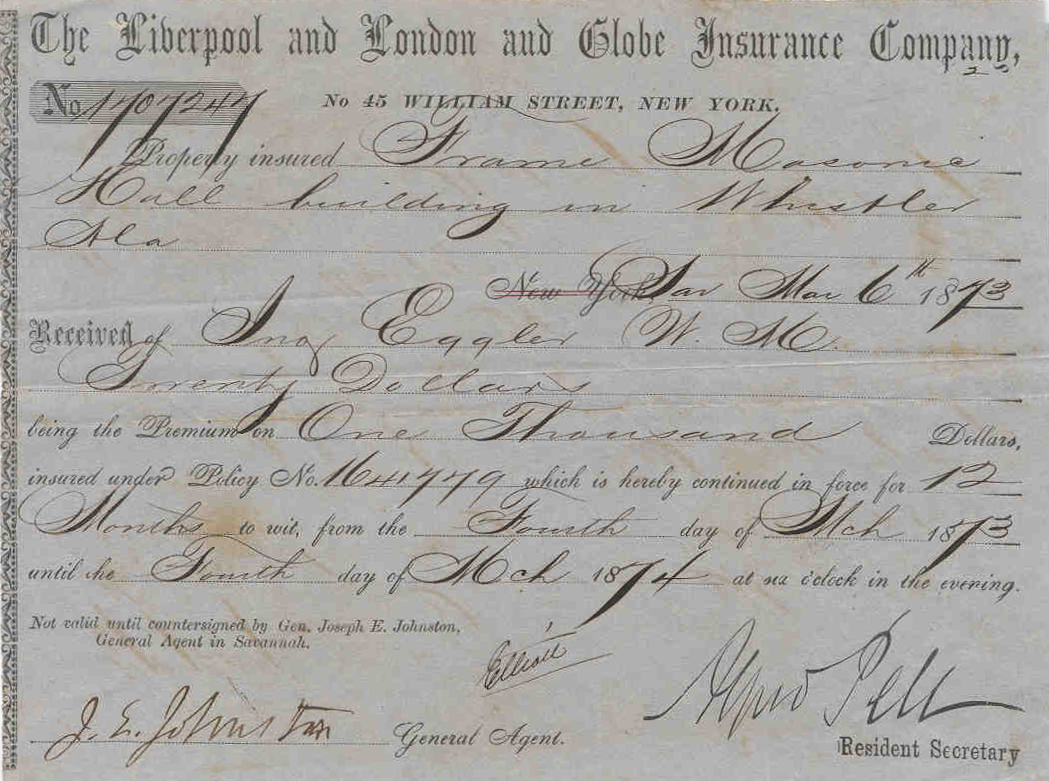 The Liverpool and London and Globe Insurance Company,
No 1707247
No 45 WILLIAM STREET, NEW YORK.
Property insured Frame Masonic
Hall building in Whistler
Ala
New York Sav Mar 6th 1873
Received of Jno Eggler W. M.
Twenty Dollars
being the Premium on One Thousand Dollars,
insured under Policy No. 1641779 which is hereby continued in force for 12
Months to wit, from the Fourth day of Mch 1873
until the Fourth day of Mch 1874 at six o'clock in the evening.
Not valid until countersigned by Gen. Joseph E. Johnston,
General Agent in Savannah.
Elliott
J. E. Johnston General Agent.
Alfred Pell
Resident Secretary